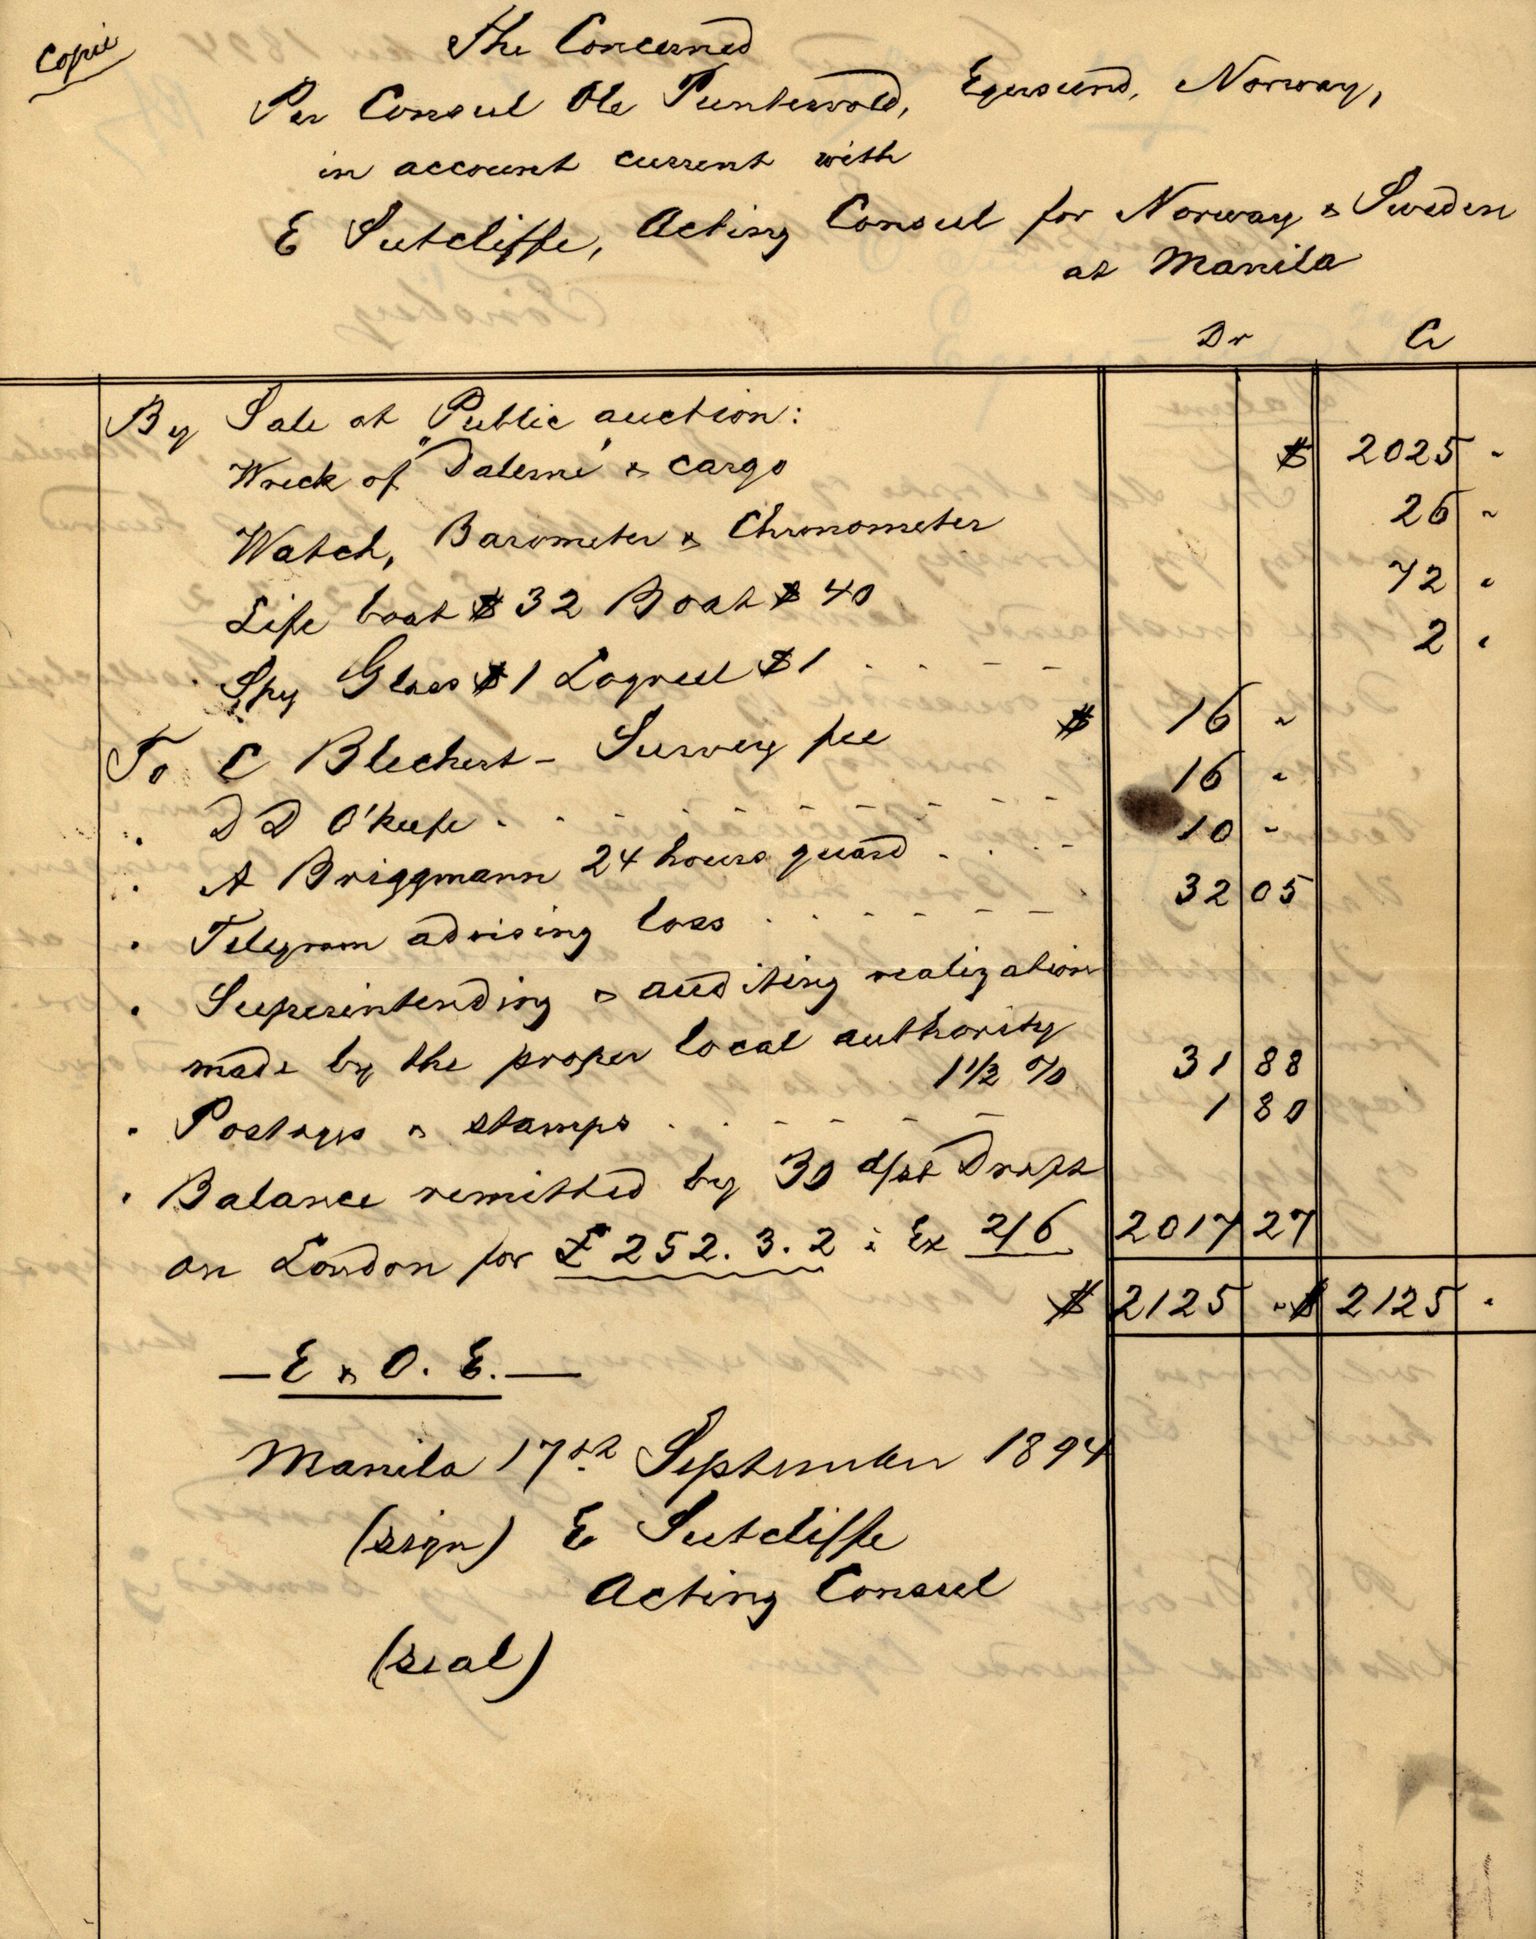 Copie
The Concerned
Per Consul Ole Puntervold, Egersund, Norway,
in account current with
E Sutcliffe, Acting Consul for Norway & Sweden
at Manila
Dr Cr
By Sale at Public auction:
Wreck of "Dalerne" & cargo $ 2025 "
Watch, Barometer & Chronometer 26 "
Life boat $ 32 Boat $ 40 72 "
Spy Glass $ 1 Logreel $ 1 2 "
To C Blechert - Survey fee $ 16 "
" D D O'Keefe 16 "
" A Briggmann 24 hours guard 10 "
" Telegram advising loss 32 05
" Superintending & auditing realization
made by the proper local authority
1 1/2 % 31 88
" Postages & stamps 1 80
" Balance remitted by 30 d/st Draft
on London for £ 252. 3. 2 : Ex 2/6 2017 27
$ 2125 " $ 2125 "
— E & O. E. —
Manila 17th September 1894
(sign) E Sutcliffe
Acting Consul
(seal)